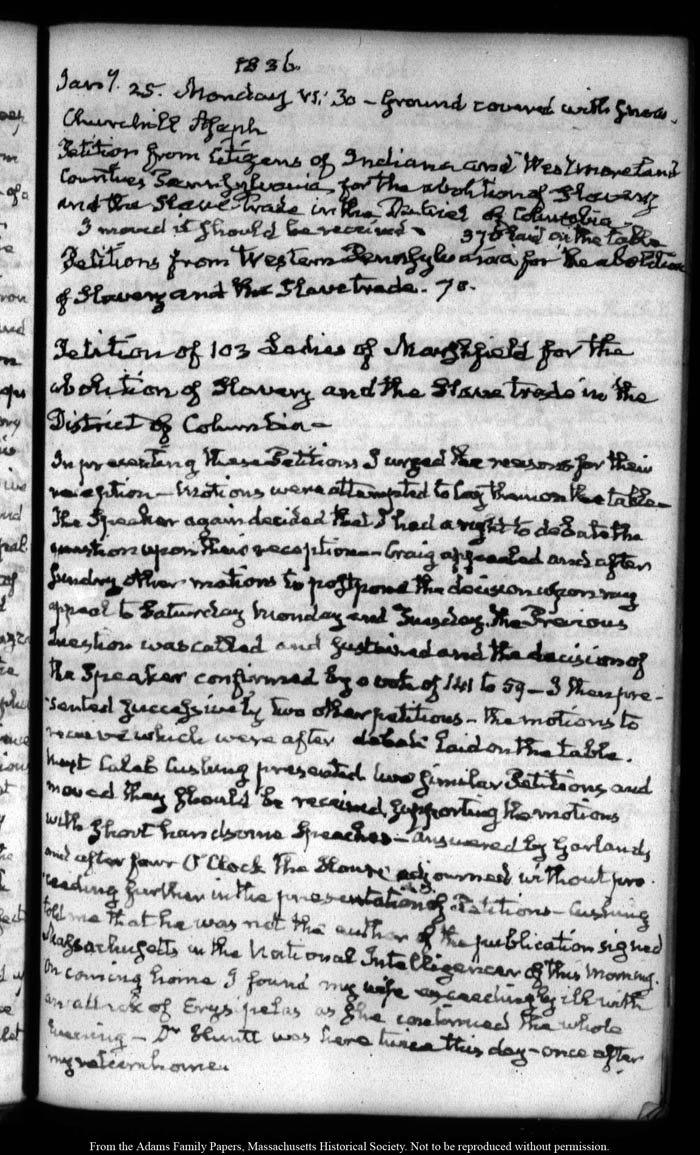 1836.
Jany. 25. Monday VI: 30 - Ground covered with Snow.
Churchill Asaph
Petition from Citizens of Indiana and Westmoreland
Counties Pennsylvania for the abolition of Slavery
and the Slave trade in the District of Columbia -
I moved it should be received - 376 laid on the table
Petitions from Western Pennsylvania for the abolition
of Slavery and the Slave trade. - 70.
Petition of 103 Ladies of Marshfield for the
abolition of Slavery and the Slave trade in the
District of Columbia -
In presenting these Petitions I urged the reasons for their
reception - Motions were attempted to lay them on the table -
The Speaker again decided that I had a right to debate the
question upon their reception - Craig appealed and after
sundry other motions to postpone the decision upon my
appeal to Saturday Monday and Tuesday. The Previous
Question was called and sustained and the decision of
the Speaker confirmed by a vote of 141 to 59 - I then pre-
sented successively two other petitions - the motions to
receive which were after debate laid on the table.
Next Caleb Cushing presented two similar Petitions and
moved they should be received, supporting the motions
with short handsome Speeches - answered by Garland,
and after four O'Clock the House adjourned without pro-
ceeding further in the presentation of Petitions - Cushing
told me that he was not the author of the publication signed
Massachusetts in the National Intelligencer of this morning.
On coming home I found my wife exceedingly ill with
an attack of Erysipelas as she continued the whole
Evening - Dr Huntt was here twice this day - once after
my return home.
From the Adams Family Papers, Massachusetts Historical Society. Not to be reproduced without permission.